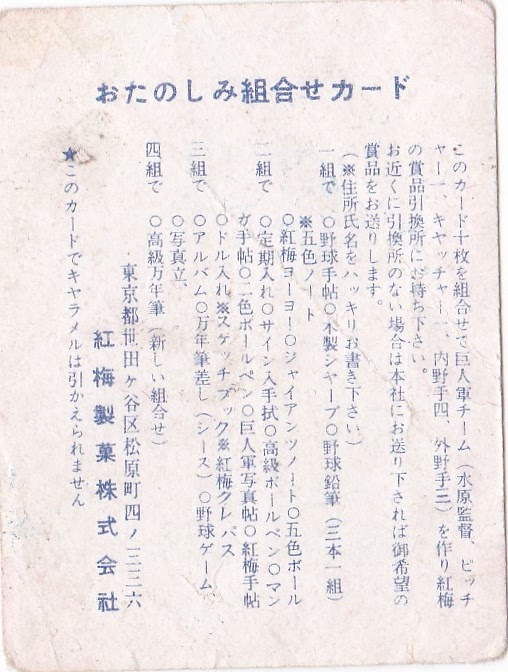 おたのしみ組合せカード
このカード十枚を組合せて巨人軍チーム（水原監督、ピッチ
ャー一、キャッチャー一、内野手四、外野手三）を作り紅梅
の賞品引換所にお持ち下さい。
お近くに引換所のない場合は本社にお送り下されば御希望の
賞品をお送りします。
（※住所氏名をハッキリお書き下さい）
一組で　○野球手帖○木製シャープ○野球鉛筆（三本一組）
※五色ノート
○紅梅ヨーヨー○ジャイアンツノート○五色ボール
二組で　○定期入れ○サイン入手拭○高級ボールペン○マン
ガ手帖○二色ボールペン○巨人軍写真帖○紅梅手帖
○ドル入れ※スケッチブック※紅梅クレパス
三組で　○アルバム○万年筆差し（シース）○野球ゲーム
○写真立、
四組で　○高級万年筆（新しい組合せ）
東京都世田ヶ谷区松原町四ノ三二六
紅梅製菓株式会社
★このカードでキャラメルは引かえられません